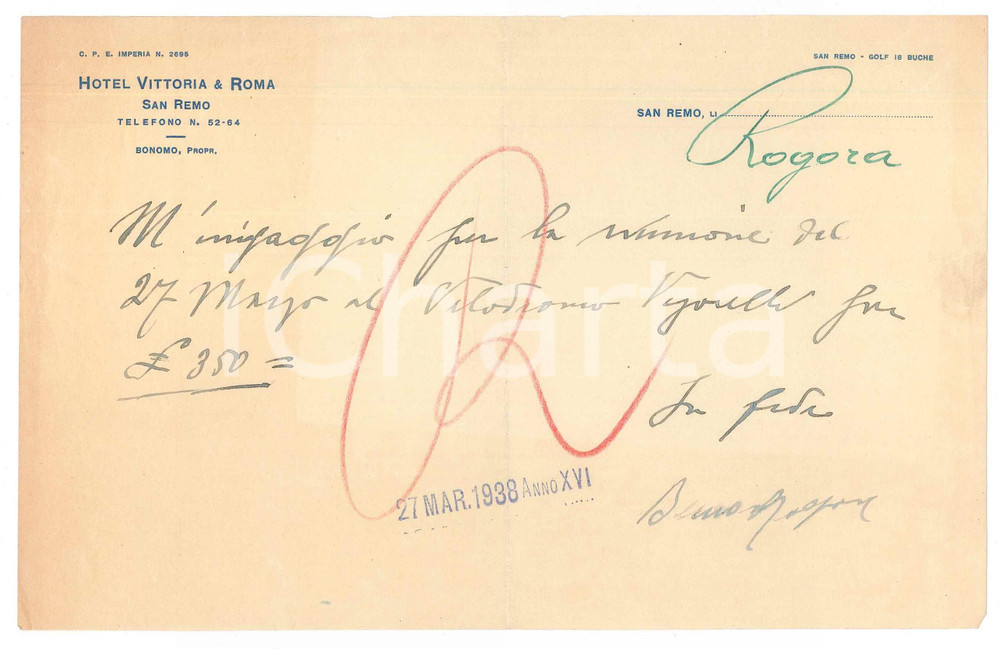 C. P. E. IMPERIA N. 2695
HOTEL VITTORIA & ROMA
SAN REMO
TELEFONO N. 52-64
BONOMO, PROPR.
SAN REMO - GOLF 18 BUCHE
SAN REMO, LI
Rogora
M'ingaggio per la riunione del
27 Marzo al Velodromo Vigorelli per
£ 350 =
In fede
27 MAR. 1938 ANNO XVI
iCharta